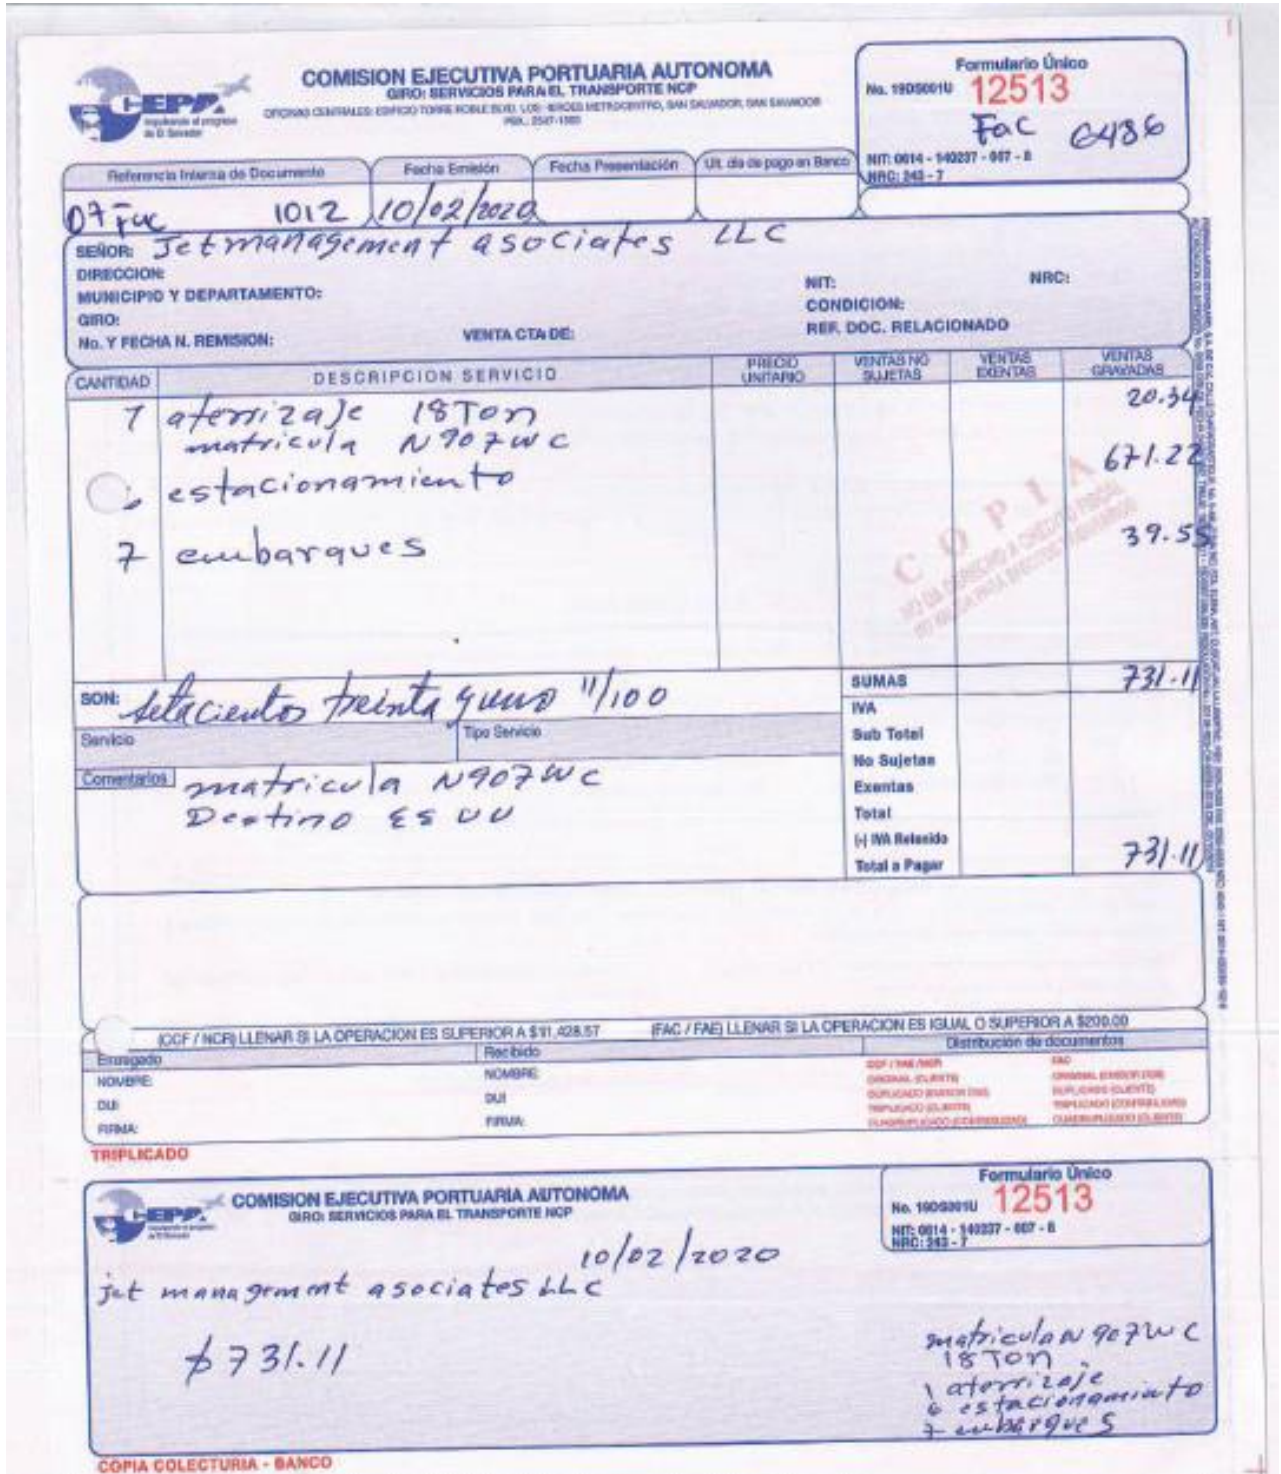 CEPA
impulsando el progreso
de El Salvador
COMISION EJECUTIVA PORTUARIA AUTONOMA
GIRO: SERVICIOS PARA EL TRANSPORTE NCP
OFICINAS CENTRALES: EDIFICIO TORRE ROBLE BLVD. LOS HEROES METROCENTRO, SAN SALVADOR, SAN SALVADOR
PBX.: 2537-1300
Formulario Único
No. 19DS001U 12513
Fac 6486
NIT: 0614 - 140237 - 007 - 8
NRC: 243 - 7
Referencia Interna de Documento Fecha Emisión Fecha Presentación Ult. dia de pago en Banco
07 Fac 1012 10/02/2020
SEÑOR: Jet management asociates LLC
DIRECCION:
MUNICIPIO Y DEPARTAMENTO: NIT: NRC:
GIRO: CONDICION:
No. Y FECHA N. REMISION: VENTA CTA DE: REF. DOC. RELACIONADO
CANTIDAD DESCRIPCION SERVICIO PRECIO UNITARIO VENTAS NO SUJETAS VENTAS EXENTAS VENTAS GRAVADAS
1 aterrizaje 18Ton 20.34
matricula N907WC
estacionamiento 671.22
7 embarques 39.55
COPIA
NO DA DERECHO A CREDITO FISCAL
SON: setacientos treinta y uno 11/100
SUMAS 731.11
IVA
Servicio Tipo Servicio
Sub Total
No Sujetas
Comentarios matricula N907WC
Exentas
Destino EEUU
Total
(-) IVA Retenido
Total a Pagar 731.11
(CCF / NCR) LLENAR SI LA OPERACION ES SUPERIOR A $11,428.57 (FAC / FAE) LLENAR SI LA OPERACION ES IGUAL O SUPERIOR A $200.00
Entregado Recibido Distribución de documentos
NOMBRE: NOMBRE:
DUI: DUI
FIRMA: FIRMA:
TRIPLICADO
CEPA
COMISION EJECUTIVA PORTUARIA AUTONOMA
GIRO: SERVICIOS PARA EL TRANSPORTE NCP
Formulario Único
No. 19DS001U 12513
NIT: 0614 - 140237 - 007 - 8
NRC: 243 - 7
10/02/2020
jet management asociates LLC
$731.11
matricula N907WC
18Ton
1 aterrizaje
6 estacionamiento
7 embarques
COPIA COLECTURIA - BANCO